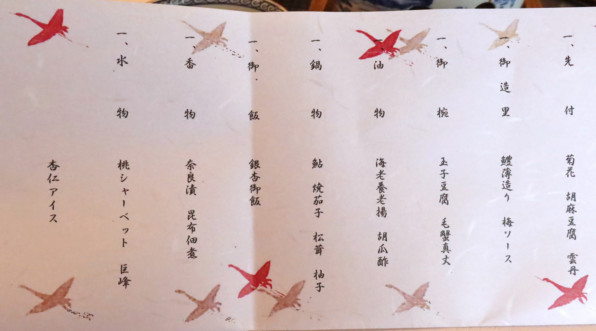 一、先付 菊花 胡麻豆腐 雲丹
一、御造里 鱧薄造り 梅ソース
一、御椀 玉子豆腐 毛蟹真丈
一、油物 海老養老揚 胡瓜酢
一、鍋物 鮎 焼茄子 松茸 柚子
一、御飯 銀杏御飯
一、香物 奈良漬 昆布佃煮
一、水物 桃シャーベット 巨峰
杏仁アイス